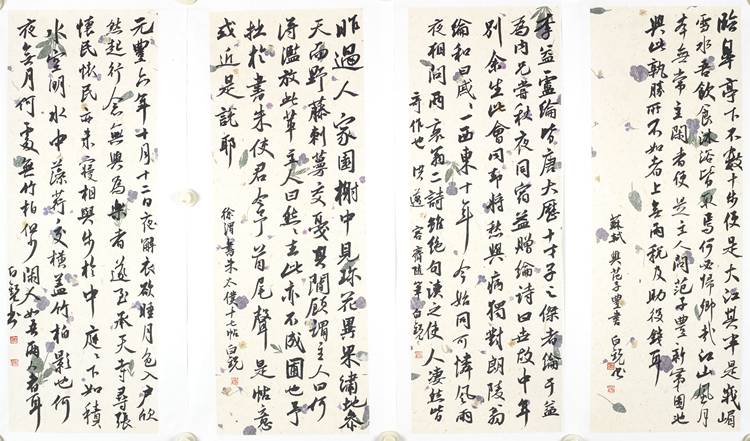 臨皋亭下不數十步便是大江其半是峨嵋
雪水吾飲食沐浴皆取焉何必歸鄉哉江山風月
本無常主閑者便是主人聞范子豐新第園池
與此孰勝所不如者上無兩稅及助役錢耳
蘇軾與范子豐書 白銳書
李益盧綸皆唐大歷十才子之傑者綸於益
為內兄嘗秋夜同宿益贈綸詩曰世故中年
別余生此會同卻將愁與病獨對朗陵翁
綸和曰戚々一西東十年今始同可憐風雨
夜相問兩衰翁二詩雖絕句讀之使人淒然皆
奇作也 洪邁 容齋隨筆 白銳
昨過人家園榭中見珍花異果繡地參
天而野藤刺蔓交戛其間顧謂主人曰何
得濫放此輩主人曰然去此亦不成圃也予
拙於書朱使君令予首尾聲是帖意
或近是說耶
徐渭書朱太僕十七帖 白銳
元豐六年十月十二日夜解衣欲睡月色入戶欣
然起行念無與為樂者遂至承天寺尋張
懷民懷民亦未寢相與步於中庭々下如積
水空明水中藻荇交橫蓋竹柏影也何
夜無月何處無竹柏但少閑人如吾兩人者耳
白銳書